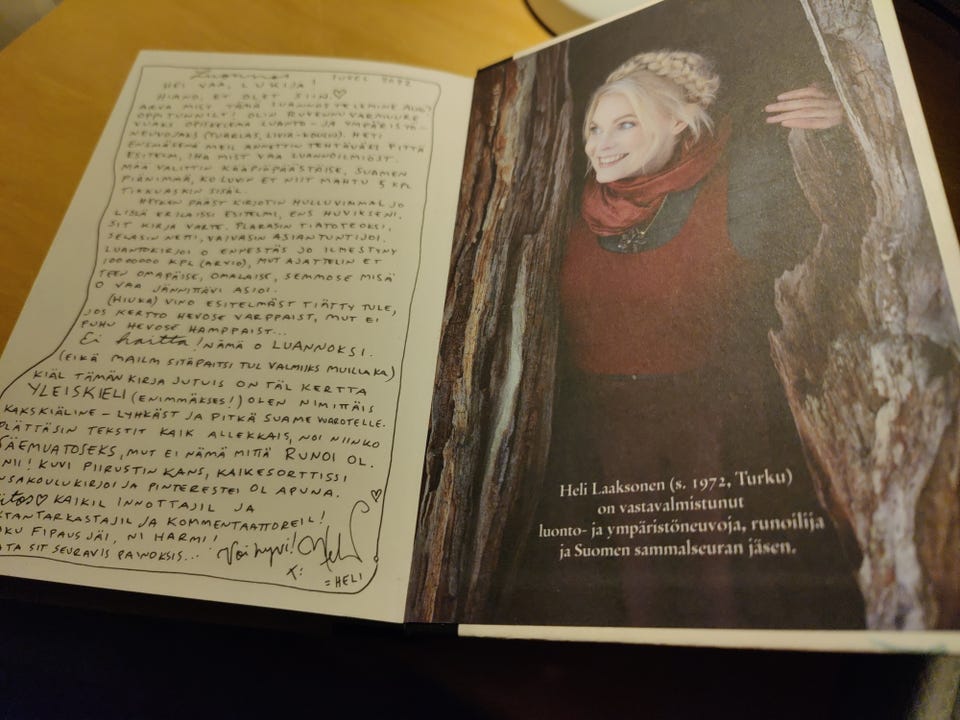 Luonnos
HEI VAA, LUKIJA!
HIANO, ET OLET SIIN. ♡
ARVA MIST TÄMÄ LUANNOSTELEMINE ALKO?
OPPITUNNILT! OLIN RUVENNU VARMUURE
VUAKS OPISKELEMA LUANTO- JA YMPÄRISTÖ-
NEUVOJAKS (TUARLAS, LIVIA-KOULU). HETI
ENSMÄSENÄ MEIL ANNETTIN TEHTÄVÄKS PITTÄ
ESITELM, IHA MIST VAA LUANNOILMIÖST.
MÄÄ VALITTIN KÄÄPIÖPÄÄSTÄISE, SUAMEN
PIÄNIMMÄ, KO LUVUN ET NIIT MAHTU 5 KPL
TIKKUASKIN SISÄL.
HETKEN PÄÄST KIRJOTIN HULLUVIMMAL JO
LISSÄ ERILAISSI ESITELMI, ENS HUVIKSENI.
SIT KIRJA VARTE. PLARASIN TIATOTEOKSI,
SELASIN NETTI, VAIVASIN ASIANTUNTIJOI.
LUANTOKIRJOI O ENNESTÄS JO ILMESTYNY
10000000 KPL (ARVIO), MUT AJATTELIN ET
TEEN OMAPÄISE, OMALAISE, SEMMOSE MISÄ
O VAA JÄNNITTÄVI ASIOI.
(HIUKA) VINO ESITELMÄST TIÄTTY TULE,
JOS KERTTO HEVOSE VARPPAIST, MUT EI
PUHU HEVOSE HAMPPAIST...
Ei haitta! NÄMÄ O LUANNOKSI.
(EIKÄ MAILM SITÄPAITSI TUL VALMIIKS MUILLAKA)
KIÄL TÄMÄN KIRJA JUTUIS ON TÄL KERTTA
YLEISKIELI (ENIMMÄKSES!) OLEN NIMITTÄIS
KAKSKIÄLINE – LYHKÄST JA PITKÄ SUAME WAROTELLE.
PLÄTTÄSIN TEKSTIT KAIK ALLEKKAIS, NOI NIINKO
SÄEMUATOSEKS, MUT EI NÄMÄ MITTÄ RUNOI OL.
NII! KUVI PIIRUSTIN KANS, KAIKESORTTISSI
NSAKOULUKIRJOI JA PINTERESTEI OL APUNA.
♡ KAIKIL INNOTTAJIL JA
KTANTARKASTAJIL JA KOMMENTAATTOREIL!
OKU FIPAUS JÄI, NI HARMI!
ATA SIT SEURAVIS PAINOKSIS... Voi hyvi! Heli
X: = HELI
Heli Laaksonen (s. 1972, Turku)
on vastavalmistunut
luonto- ja ympäristöneuvoja, runoilija
ja Suomen sammalseuran jäsen.